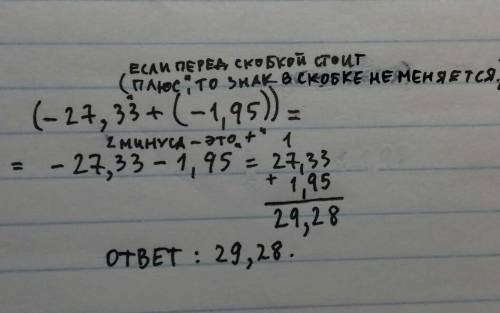 ЕСЛИ ПЕРЕД СКОБКОЙ СТОИТ
(ПЛЮС", ТО ЗНАК В СКОБКЕ НЕ МЕНЯЕТСЯ,
(-27,33 + (-1,95)) =
2 МИНУСА - ЭТО „+"
= -27,33 - 1,95 = 27,33
1
+ 1,95
29,28
ОТВЕТ : 29,28.